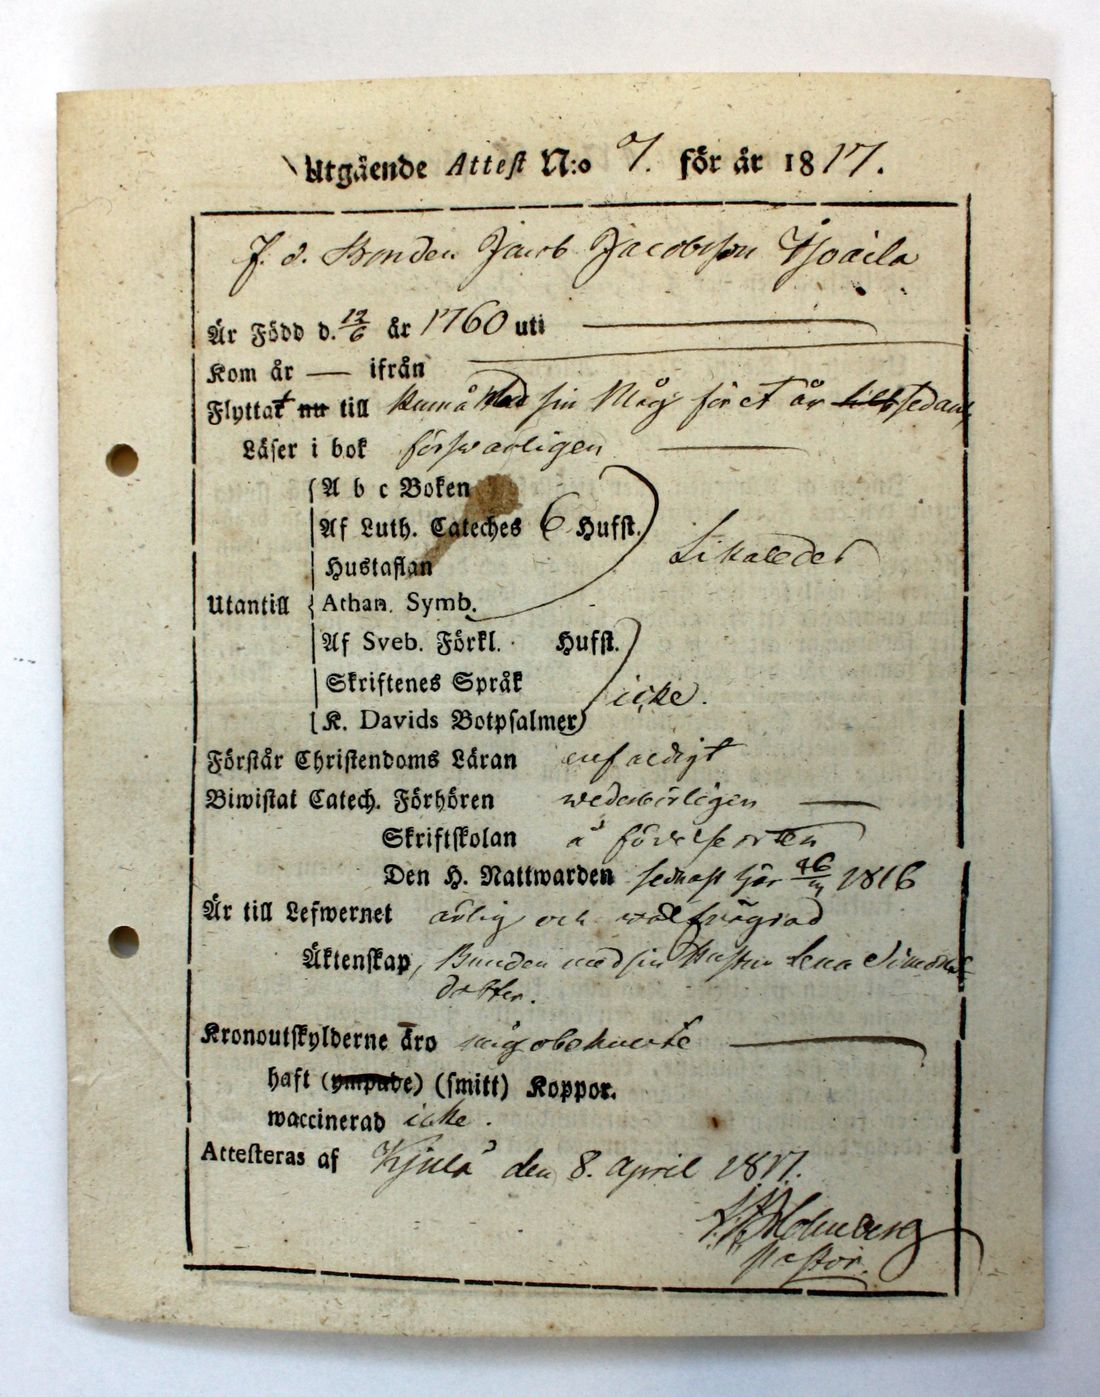 Utgående Attest N:o 7. för år 1817.
F. d. Bonden Jacob Jacobsson
Är Född d. 12/6 år 1760 uti
Kom år — ifrån
Flyttat nu till Kumå med sin Måg för et år sedan,
Läser i bok försvarligen
A b c Boken
Af Luth. Cateches 6 Hufst.
Hustaflan
Likaledes
Utantill Athan. Symb.
Af Sveb. Förkl. Hufst.
Skriftenes Språk
icke.
K. Davids Botpsalmer
Förstår Christendoms Läran enfaldigt
Biwistat Catech. Förhören wederbörligen
Skriftskolan å
Den H. Nattwarden sednast här 1816
Är till Lefwernet ärlig och wälfrägdad
Äktenskap, Bunden med sin Hustru Lena Simons
dotter.
Kronoutskylderne äro mig obekante
haft (ympade) (smitt) Koppor.
waccinerad icke.
Attesteras af Kjulå den 8. April 1817.
Pastor.